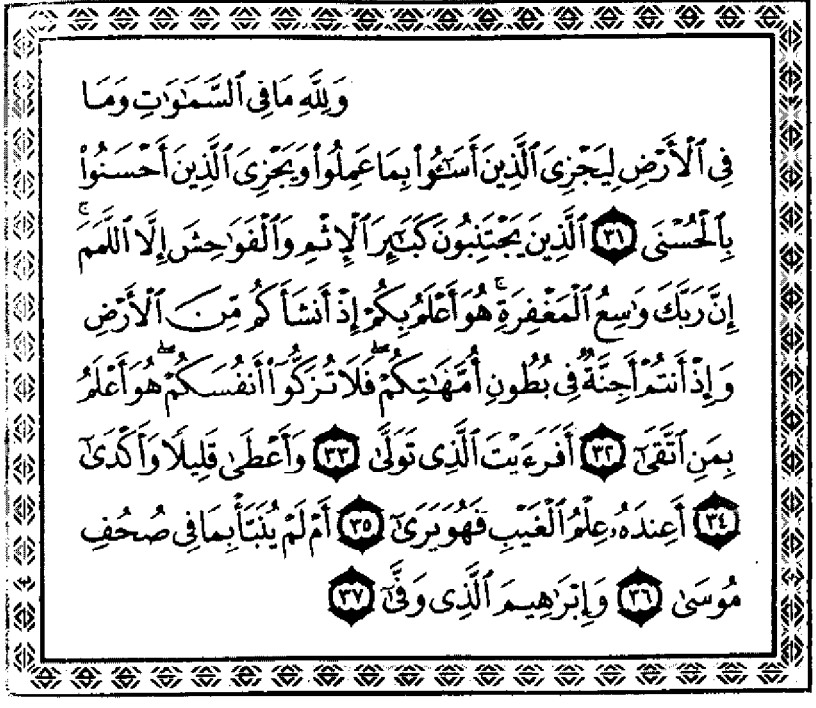 وَلِلَّهِ مَا فِى ٱلسَّمَٰوَٰتِ وَمَا
فِى ٱلْأَرْضِ لِيَجْزِىَ ٱلَّذِينَ أَسَٰٓـُٔوا۟ بِمَا عَمِلُوا۟ وَيَجْزِىَ ٱلَّذِينَ أَحْسَنُوا۟
بِٱلْحُسْنَى ٣١ ٱلَّذِينَ يَجْتَنِبُونَ كَبَٰٓئِرَ ٱلْإِثْمِ وَٱلْفَوَٰحِشَ إِلَّا ٱللَّمَمَ ۚ
إِنَّ رَبَّكَ وَٰسِعُ ٱلْمَغْفِرَةِ ۚ هُوَ أَعْلَمُ بِكُمْ إِذْ أَنشَأَكُم مِّنَ ٱلْأَرْضِ
وَإِذْ أَنتُمْ أَجِنَّةٌ فِى بُطُونِ أُمَّهَٰتِكُمْ ۖ فَلَا تُزَكُّوٓا۟ أَنفُسَكُمْ ۖ هُوَ أَعْلَمُ
بِمَنِ ٱتَّقَىٰٓ ٣٢ أَفَرَءَيْتَ ٱلَّذِى تَوَلَّىٰ ٣٣ وَأَعْطَىٰ قَلِيلًا وَأَكْدَىٰٓ
٣٤ أَعِندَهُۥ عِلْمُ ٱلْغَيْبِ فَهُوَ يَرَىٰٓ ٣٥ أَمْ لَمْ يُنَبَّأْ بِمَا فِى صُحُفِ
مُوسَىٰ ٣٦ وَإِبْرَٰهِيمَ ٱلَّذِى وَفَّىٰٓ ٣٧